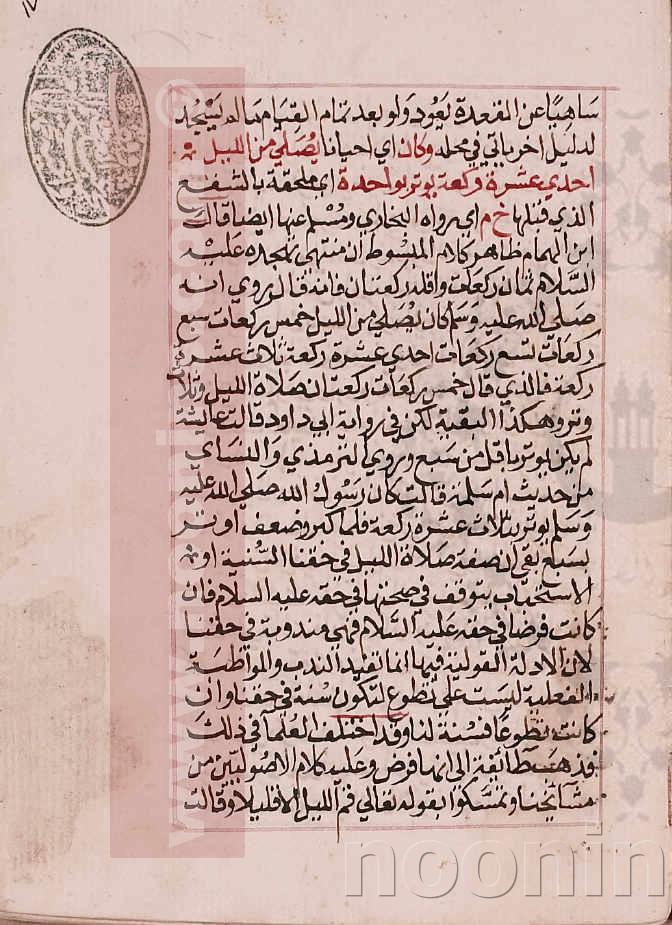 ساهيا عن المقعدة يعود ولو بعد تمام القيام ماله يسجد
لدليل اخر ياتي في محله وكان اي احيانا يصلي من الليل
احدي عشرة ركعة يوتر بواحدة اي ملحقة بالشفع
الذي قبلها خ م اي رواه البخاري ومسلم عنها ايضا قال
ابن الهمام ظاهر كلام المبسوط ان منتهي تهجده عليه
السلام ثمان ركعات واقله ركعتان فانه قال روي انه
صلي الله عليه وسلم كان يصلي من الليل خمس ركعات سبع
ركعات تسع ركعات احدي عشرة ركعة ثلاث عشرة
ركعة فالذي قال خمس ركعات ركعتان صلاة الليل وثلاث
وتر وهكذا البقية لكن في رواية ابي داود قالت عايشة
لم يكن يوتر باقل من سبع وروي الترمذي والنساي
من حديث ام سلمة قالت كان رسول الله صلي الله عليه
وسلم يوتر بثلاث عشرة ركعة فلما كبر وضعف اوتر
بسبع بقي ان صفة صلاة الليل في حقنا السنية او
الاستحباب يتوقف في صحتها في حقه عليه السلام فان
كانت فرضا في حقه عليه السلام فهي مندوبة في حقنا
لان الادلة القولية فيها انما تفيد الندب والمواظبة
الفعلية ليست علي تطوع لتكون سنة في حقنا وان
كانت تطوعا فسنة لنا وقد اختلف العلما في ذلك
فذهب طائفة الي انها فرض وعليه كلام الاصوليين من
مشائخنا وتمسكوا بقوله تعالي قم الليل الا قليلا وقالت
noonin
www